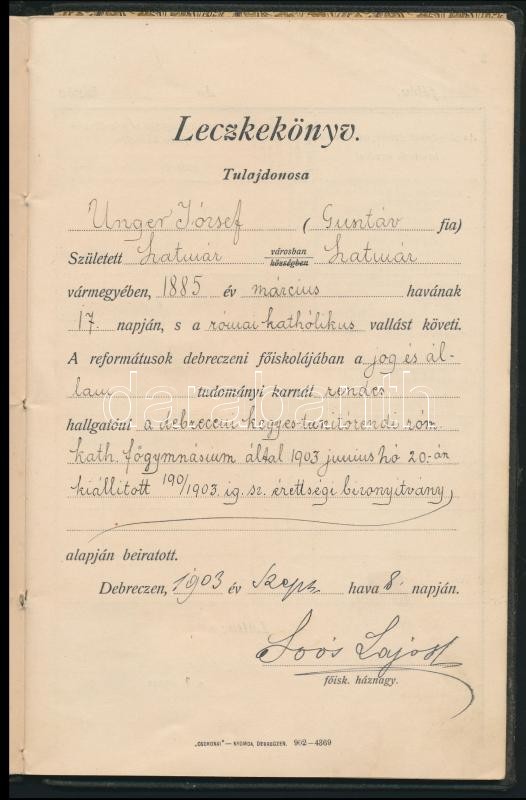 Leczkekönyv.
Tulajdonosa
Unger József ( Gusztáv fia)
Született Szatmár városban községben Szatmár
vármegyében, 1885 év március havának
17. napján, s a római kathólikus vallást követi.
A reformátusok debreczeni főiskolájában a jog és ál-
lam tudományi karnál rendes
hallgatóul a debreczeni kegyes-tanítórendi róm.
kath. főgymnásium által 1903 junius hó 20.-án
kiállított 190/1903. ig. sz. érettségi bizonyítvány
alapján beiratott.
Debreczen, 1903 év Szept. hava 8. napján.
Soós Lajos
főisk. háznagy.
„CSOKONAI"—NYOMDA, DEBRECZEN. 902—4369
darabanth